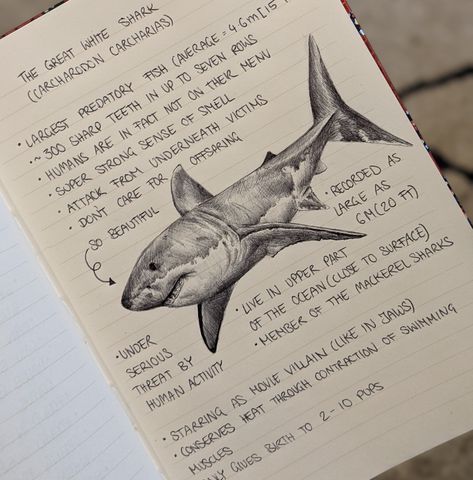 THE GREAT WHITE SHARK
(CARCHARODON CARCHARIAS)
• LARGEST PREDATORY FISH (AVERAGE = 4.6m [15
• ~ 300 SHARP TEETH IN UP TO SEVEN ROWS
• HUMANS ARE IN FACT NOT ON THEIR MENU
• SUPER STRONG SENSE OF SMELL
• ATTACK FROM UNDERNEATH VICTIMS
• DONT CARE FOR OFFSPRING
SO BEAUTIFUL
• RECORDED AS
LARGE AS
6M (20 FT)
• LIVE IN UPPER PART
OF THE OCEAN (CLOSE TO SURFACE)
• MEMBER OF THE MACKEREL SHARKS
• UNDER
SERIOUS
THREAT BY
HUMAN ACTIVITY
• STARRING AS MOVIE VILLAIN (LIKE IN JAWS)
• CONSERVES HEAT THROUGH CONTRACTION OF SWIMMING
MUSCLES
GIVES BIRTH TO 2-10 PUPS